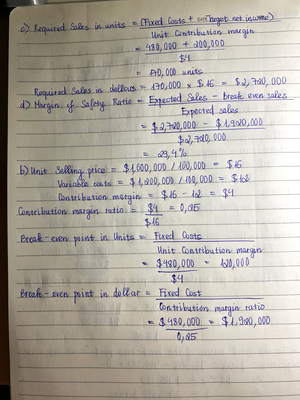 c) Required Sales in units = (Fixed Costs + Target net income)
Unit Contribution margin
= 480,000 + 200,000
$4
= 170,000 units
Required Sales in dollars = 170,000 x $16 = $2,720,000
d) Margin of Safety Ratio = Expected Sales - break even sales
Expected sales
= $2,720,000 - $1,920,000
$2,720,000
= 29,4%
b) Unit Selling price = $1,600,000 / 100,000 = $16
Variable costs = $1,200,000 / 100,000 = $12
Contribution margin = $16 - 12 = $4
Contribution margin ratio = $4 = 0,25
$16
Break-even point in Units = Fixed Costs
Unit Contribution margin
= $480,000 = 120,000
$4
Break-even point in dollar = Fixed Cost
Contribution margin ratio
= $480,000 = $1,920,000
0,25